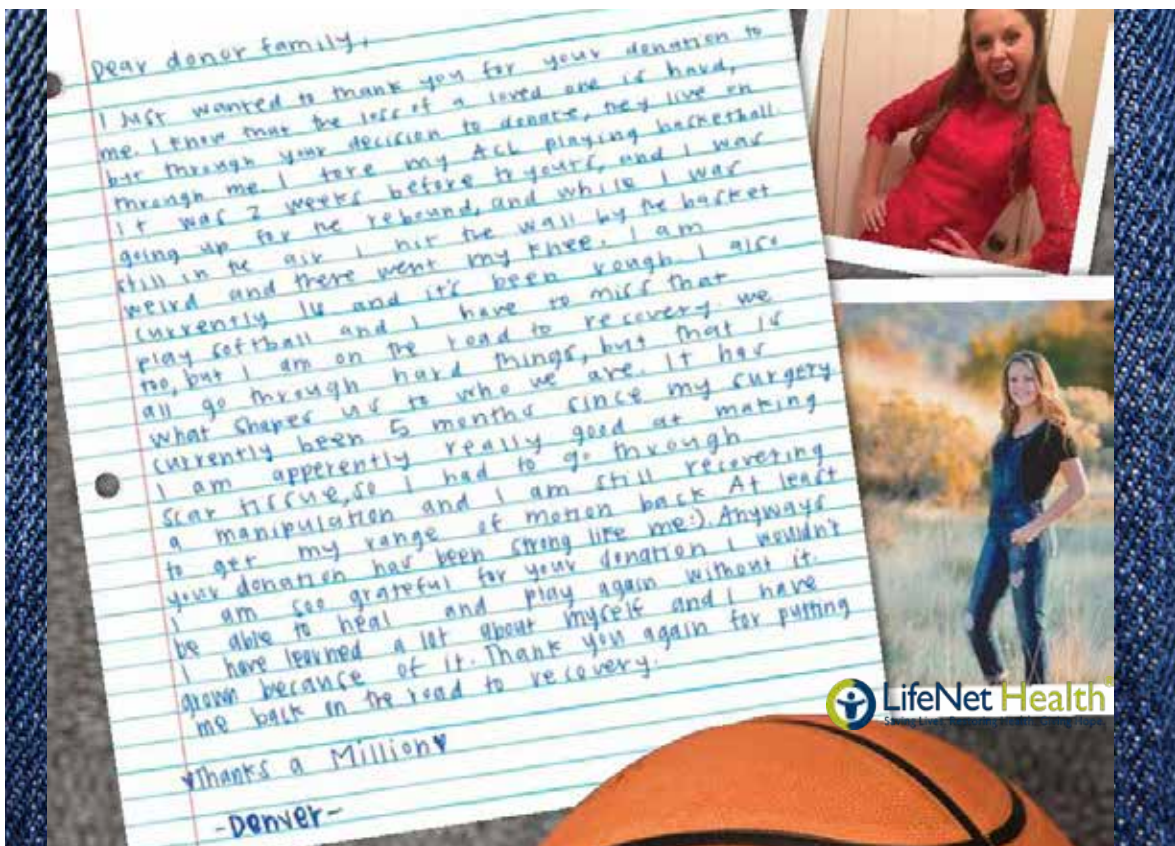 Dear donor family,
I just wanted to thank you for your donation to
me. I know that the loss of a loved one is hard,
but through your decision to donate, they live on
through me. I tore my ACL playing basketball.
It was 2 weeks before tryouts, and I was
going up for the rebound, and while I was
still in the air I hit the wall by the basket
weird and there went my knee. I am
currently 16 and it's been rough. I also
play softball and I have to miss that
too, but I am on the road to recovery. We
all go through hard things, but that is
what shapes us to who we are. It has
currently been 5 months since my surgery
I am apperently really good at making
scar tissue, so I had to go through
a manipulation and I am still recovering
to get my range of motion back At least
your donation has been strong like me:). Anyways
I am soo grateful for your donation I wouldn't
be able to heal and play again without it.
I have learned a lot about myself and I have
grown because of it. Thank you again for putting
me back on the road to recovery.
♥Thanks a Million♥
-Denver-
LifeNet Health®